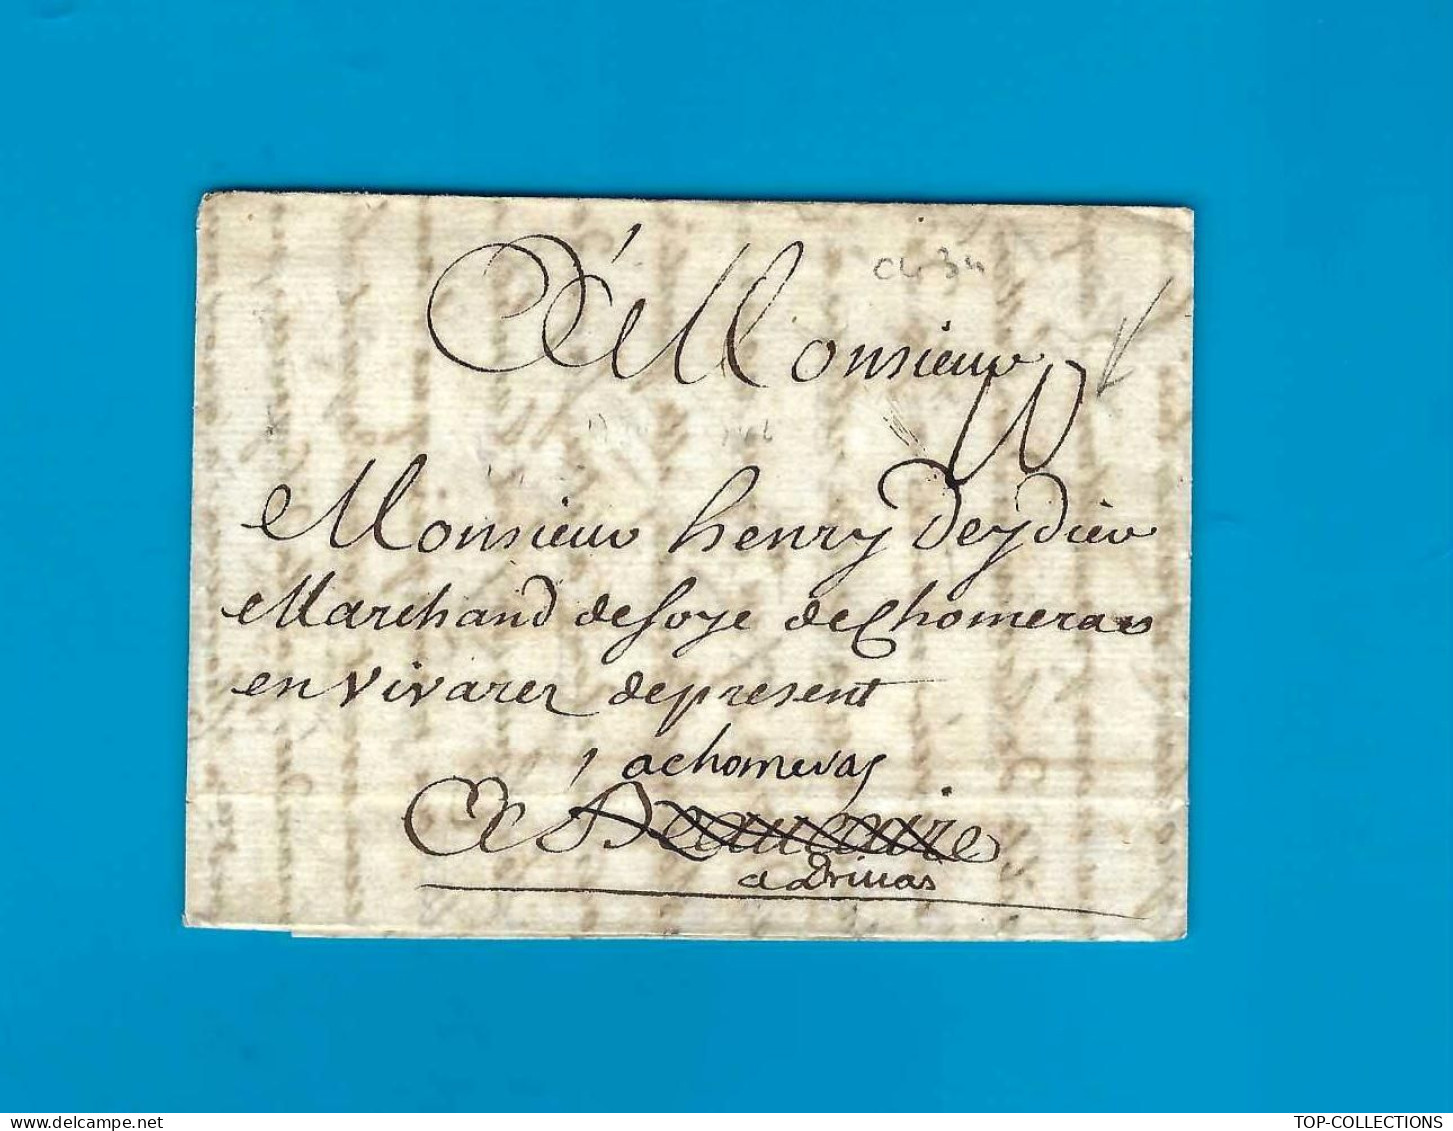 À Monsieur
Monsieur henry Deydier
Marchand de soye de Chomeras
en Vivarez de present
a chomeras
À Beaucaire
a Privas
delcampe.net
TOP-COLLECTIONS